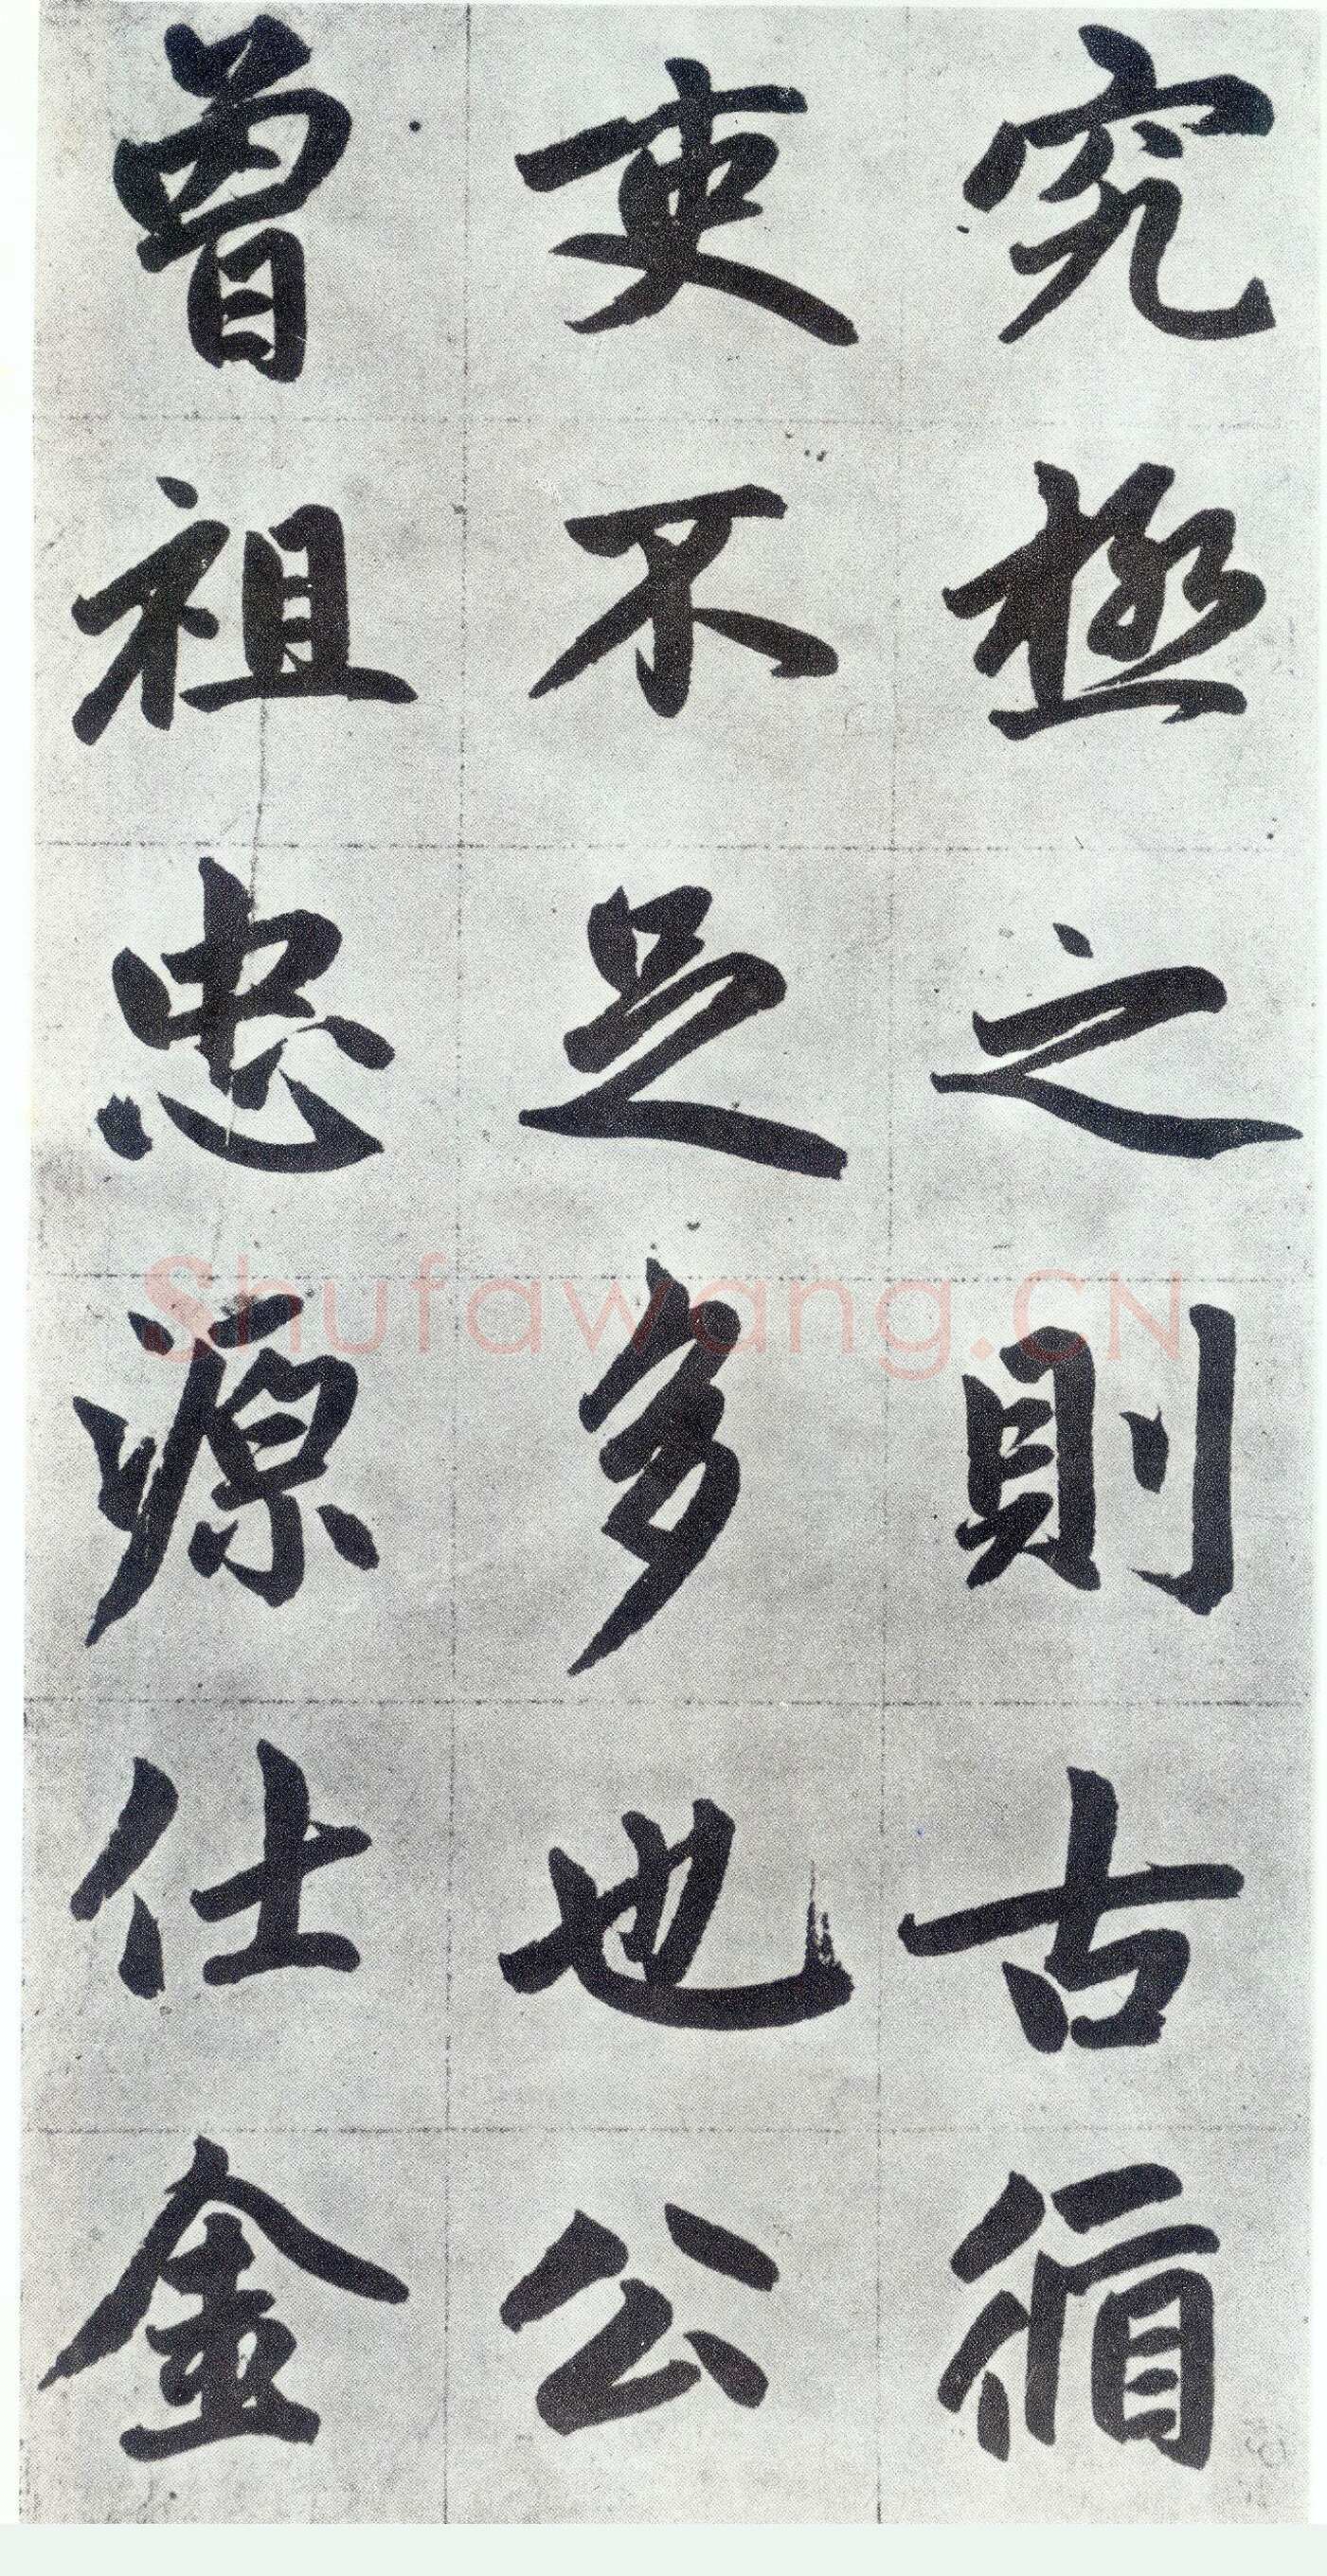 究極之則古循
吏不足多也公
曾祖忠源仕金
Shufawang.CN